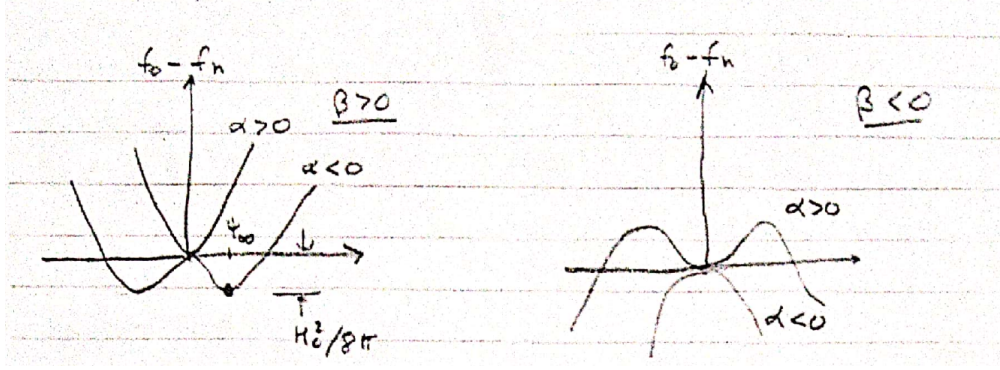 f₀ - fₙ
β>0
α>0
α<0
ψ∞
H²c/8π
f₀ - fₙ
β<0
α>0
α<0